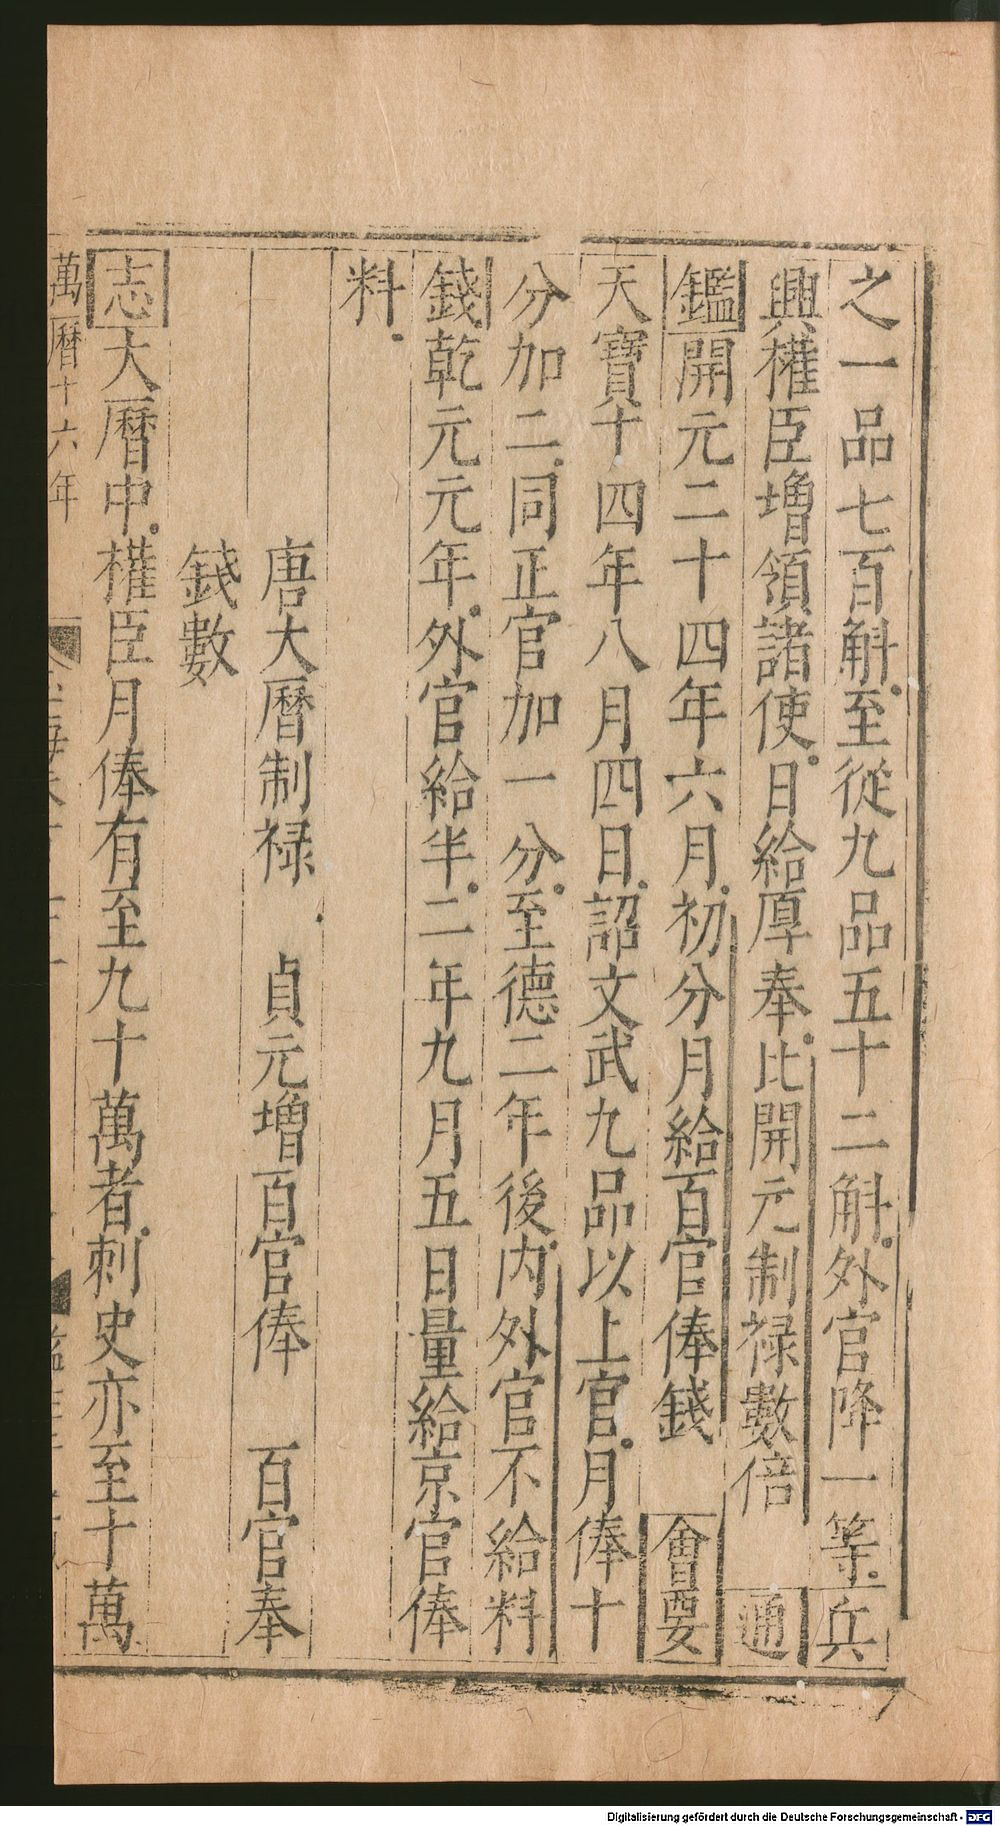 之一品七百斛。至從九品五十二斛。外官降一等。兵
興。權臣增領諸使。日給厚奉。比開元制祿數倍 通
鑑開元二十四年六月。初分月給百官俸錢 會要
天寶十四年八月四日。詔文武九品以上官。月俸十
分加二。同正官加一分。至德二年後。內外官不給料
錢乾元元年。外官給半。二年九月五日量給京官俸
料。
唐大曆制祿 貞元增百官俸 百官奉
錢數
志大曆中。權臣月俸有至九十萬者。刺史亦至十萬
萬曆十六年
Digitalisierung gefördert durch die Deutsche Forschungsgemeinschaft - DFG